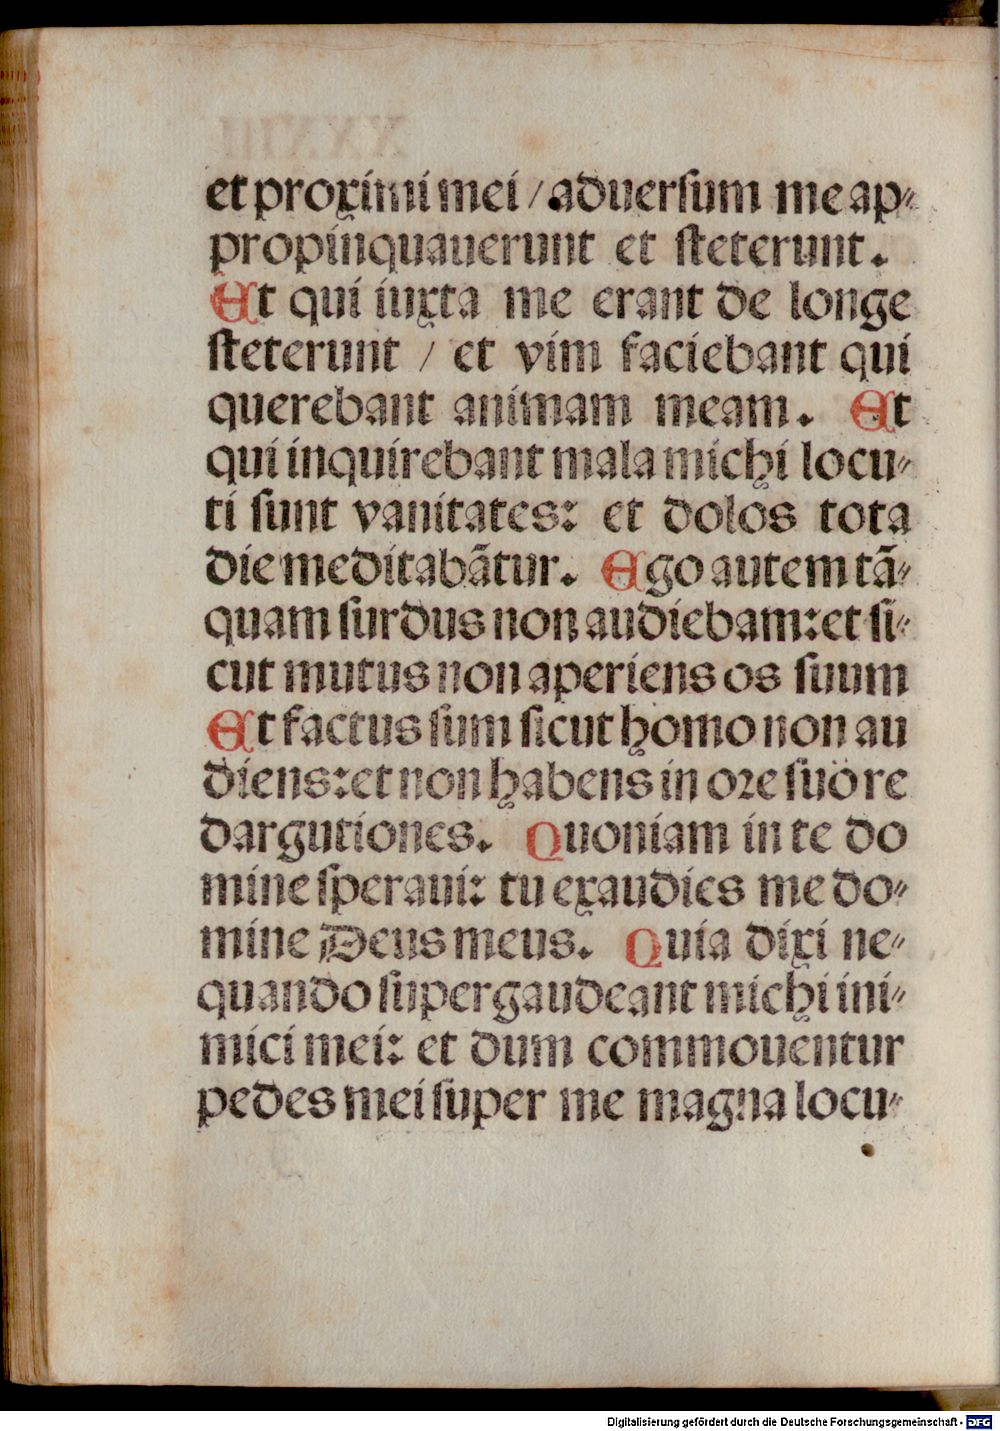 et proximi mei / aduersum me ap-
propinquauerunt et steterunt.
Et qui iuxta me erant de longe
steterunt / et vim faciebant qui
querebant animam meam. Et
qui inquirebant mala michi locu-
ti sunt vanitates: et dolos tota
die meditabãtur. Ego autem tã-
quam surdus non audiebam: et si-
cut mutus non aperiens os suum
Et factus sum sicut homo non au
diens: et non habens in ore suo re
dargutiones. Quoniam in te do
mine speraui: tu exaudies me do-
mine Deus meus. Quia dixi ne-
quando supergaudeant michi ini-
mici mei: et dum commouentur
pedes mei super me magna locu-
Digitalisierung gefördert durch die Deutsche Forschungsgemeinschaft - DFG